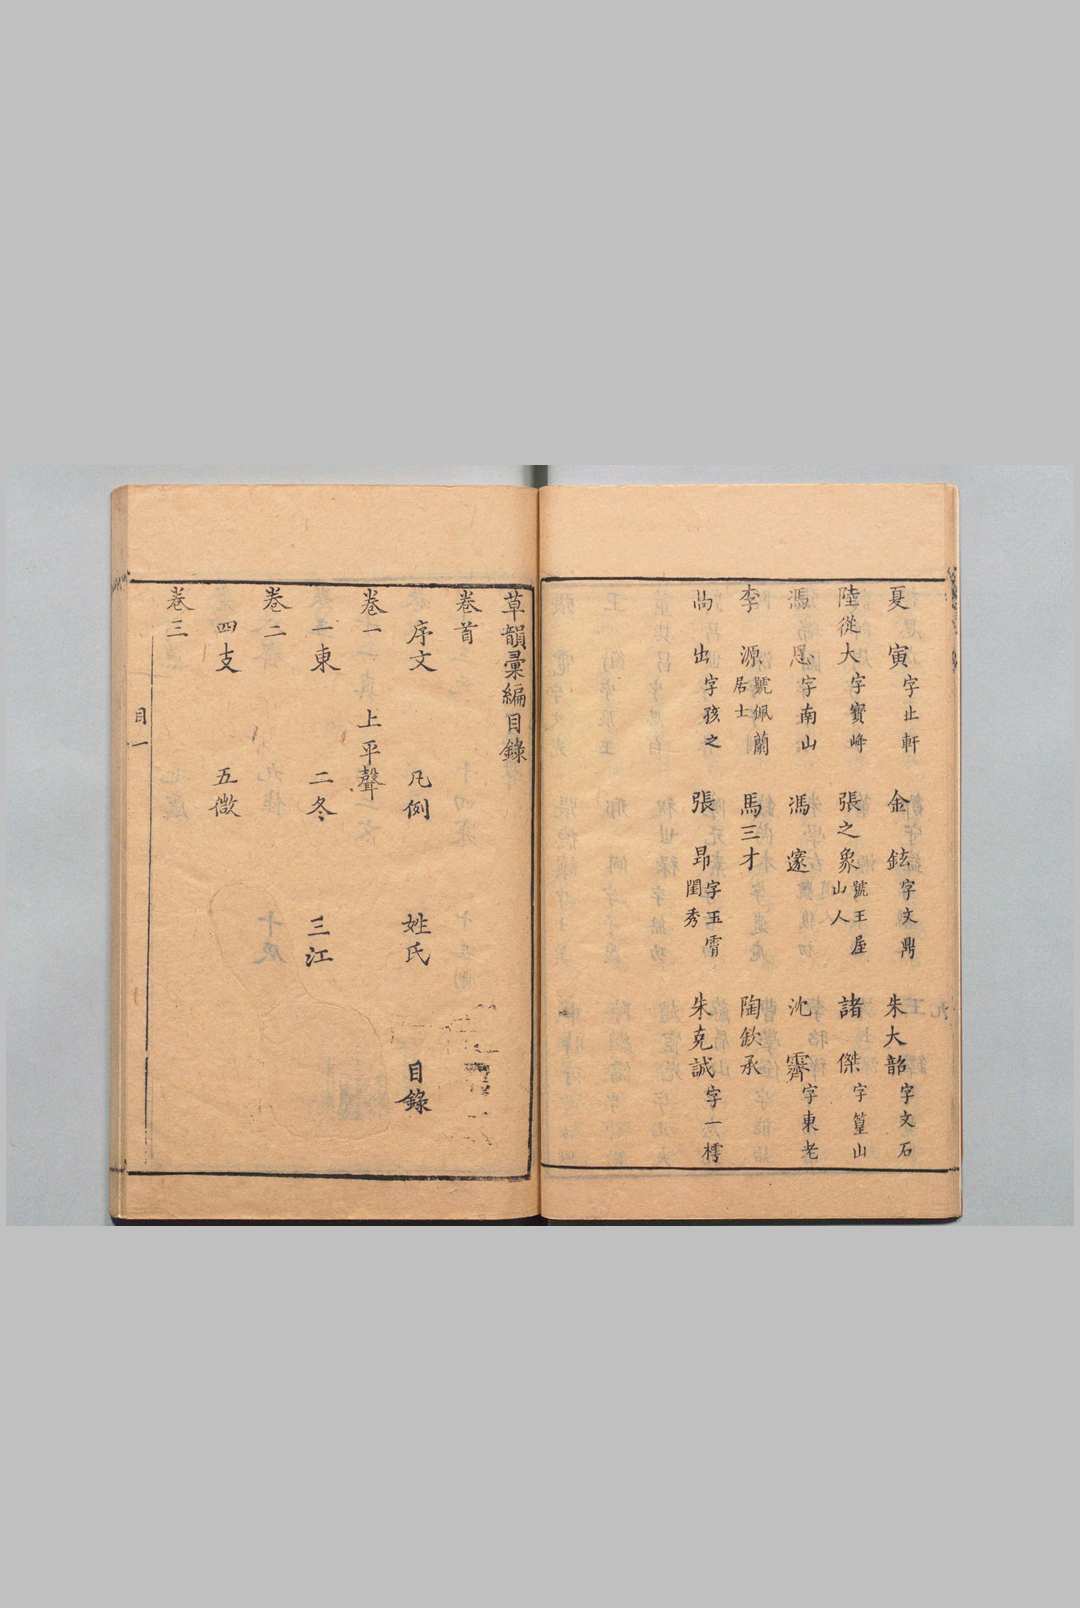 夏寅字止軒 金鉉字文鼎 朱大韶字文石
陸從大字寶峰 張之象號王屋山人 諸傑字篁山
馮恩字南山 馮邃 沈霽字東老
李源號佩蘭居士 馬三才 陶欽承
喬出字孩之 張昂字玉霄閨秀 朱克誠字一樗
草韻彙編目錄
卷首
序文 凡例 姓氏 目錄
卷一 上平聲
一東 二冬 三江
卷二
四支 五微
卷三
目一